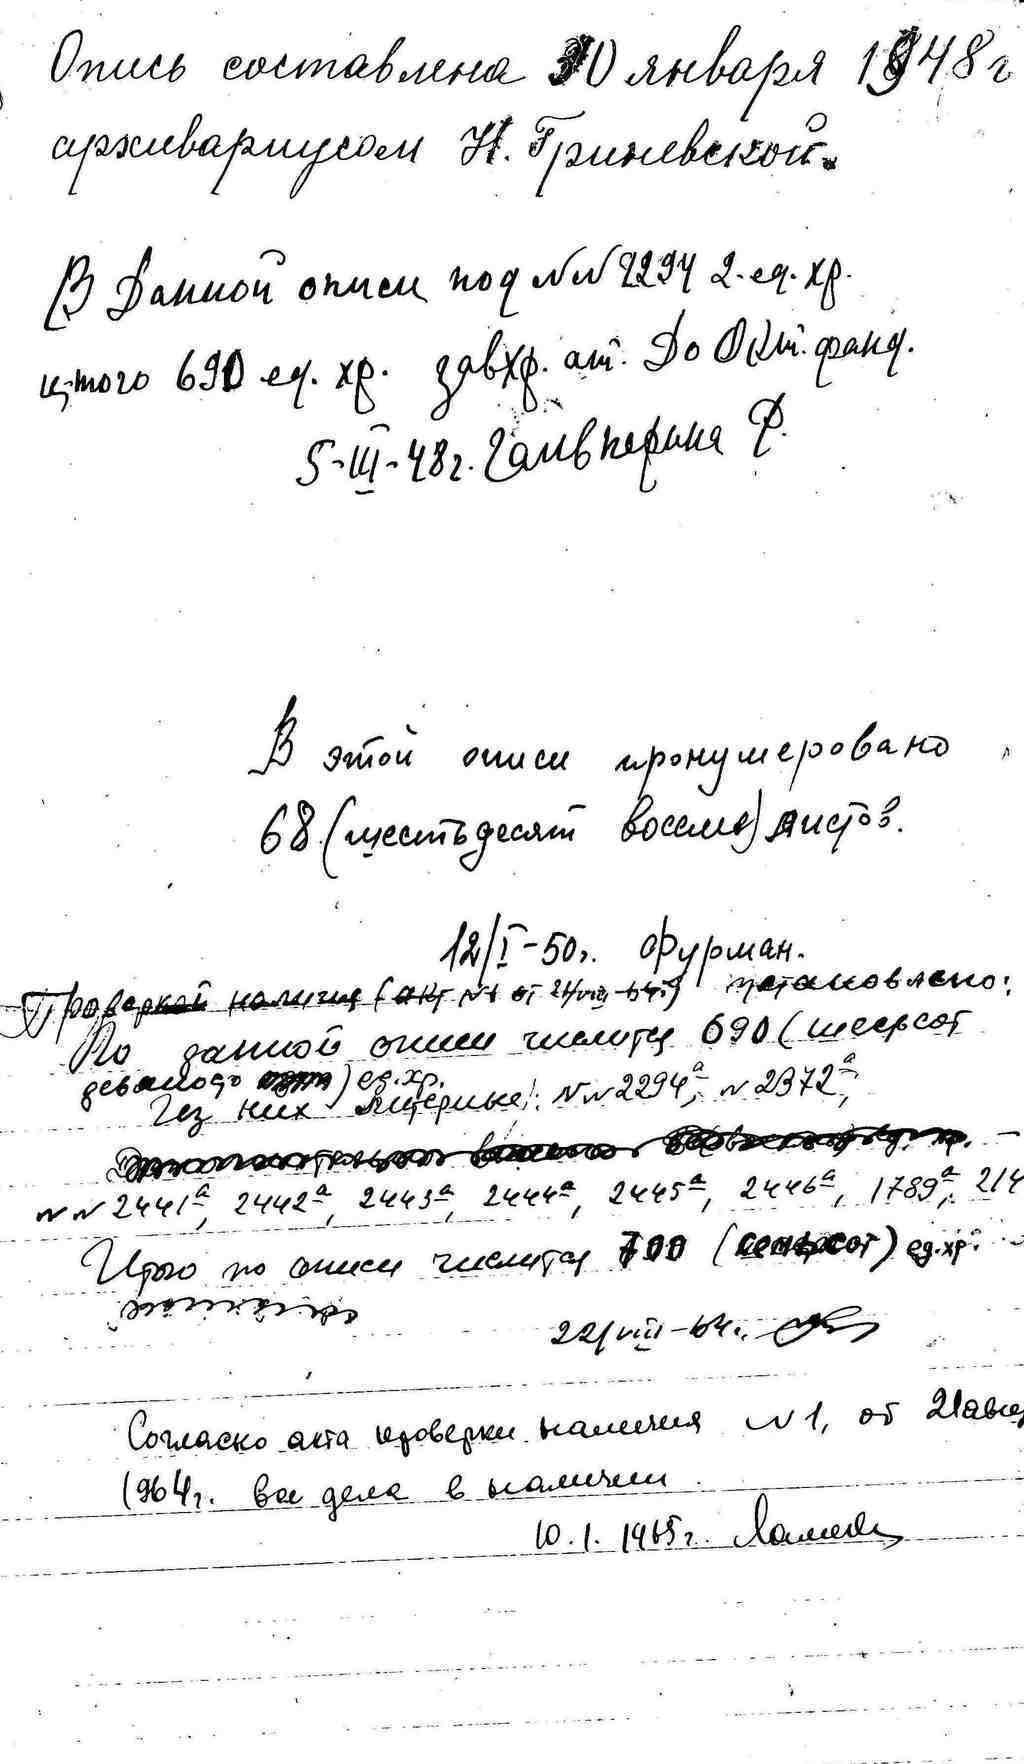 Опись составлена 30 января 1948 г
архивариусом Н. Гриневской.
В данной описи под NN 2294 2. ед. хр.
итого 690 ед. хр. завхр. от. До Окт. фонд.
5-III-48 г. Гальперина Р.
В этой описи пронумеровано
68 (шестьдесят восемь) листов.
12/I-50 г. Фурман.
Проверкой наличия (акт N1 от 21/VIII-64 г) установлено:
По данной описи числится 690 (шестьсот
девяносто) ед. хр.
Из них литерные: NN 2294а, N 2372а,
NN 2441а, 2442а, 2443а, 2444а, 2445а, 2446а, 1789а, 214
Итого по описи числится 700 (семьсот) ед. хр.
22/VIII-64 г.
Согласно акта проверки наличия N 1, от 21 авг
1964 г. все дела в наличии.
10.1.1965 г.